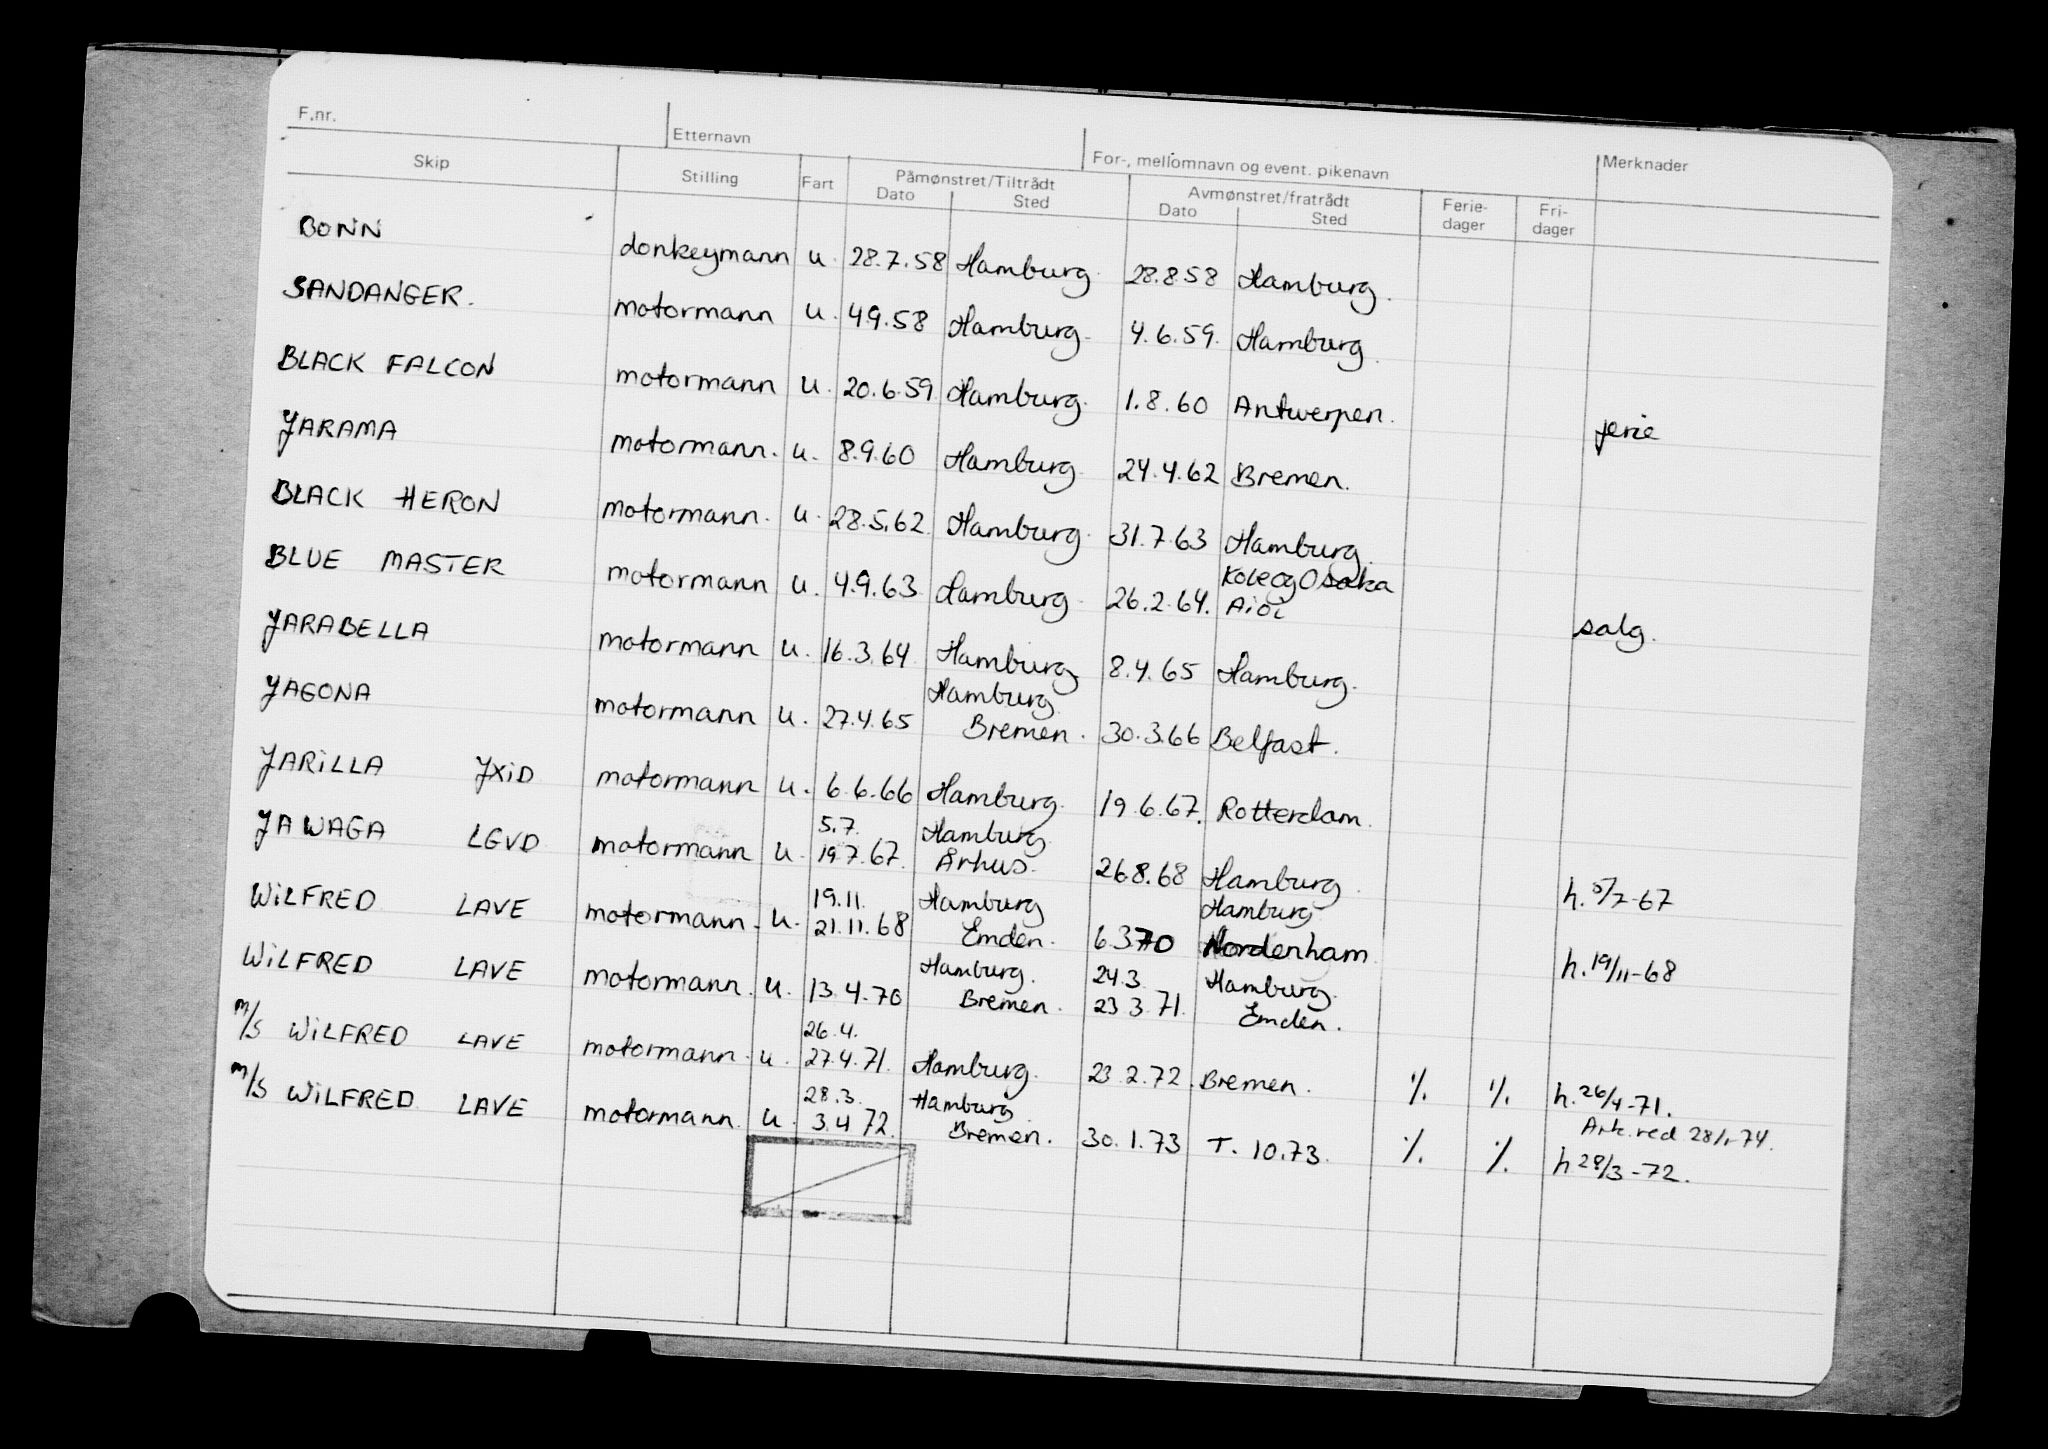 F.nr. Etternavn For-, mellomnavn og event. pikenavn Merknader
Skip Stilling Fart Påmønstret/Tiltrådt Avmønstret/fratrådt Ferie- Fri-
Dato Sted Dato Sted dager dager
BONN donkeymann u. 28.7.58 Hamburg. 28.8.58 Hamburg.
SANDANGER. motormann u. 4.9.58 Hamburg. 4.6.59. Hamburg.
BLACK FALCON motormann u. 20.6.59 Hamburg. 1.8.60 Antwerpen. ferie
JARAMA motormann. u. 8.9.60 Hamburg. 24.4.62 Bremen.
BLACK HERON motormann. u. 28.5.62. Hamburg. 31.7.63 Hamburg.
Kobe og Osaka
BLUE MASTER motormann u. 4.9.63 Hamburg. 26.2.64. Aioi salg.
JARABELLA motormann u. 16.3.64. Hamburg 8.4.65 Hamburg.
Hamburg.
JAGONA motormann u. 27.4.65 Bremen. 30.3.66 Belfast.
JARILLA JXID motormann u. 6.6.66 Hamburg. 19.6.67. Rotterdam.
5.7. Hamburg
JAWAGA LGVD motormann u. 19.7.67. Århus. 26.8.68 Hamburg. h. 5/7-67
19.11. Hamburg Hamburg
WILFRED LAVE motormann. u. 21.11.68 Emden. 6.3.70 Nordenham h. 19/11-68
Hamburg. 24.3. Hamburg.
WILFRED LAVE motormann. u. 13.4.70 Bremen. 23.3.71. Emden.
26.4.
m/s WILFRED LAVE motormann. u. 27.4.71. Hamburg. 23.2.72. Bremen. %. %. h. 26/4-71.
28.3. Hamburg Ark. red 28/1-74.
m/s WILFRED LAVE motormann. u. 3.4.72. Bremen. 30.1.73 T. 10.73. %. %. h 28/3-72.